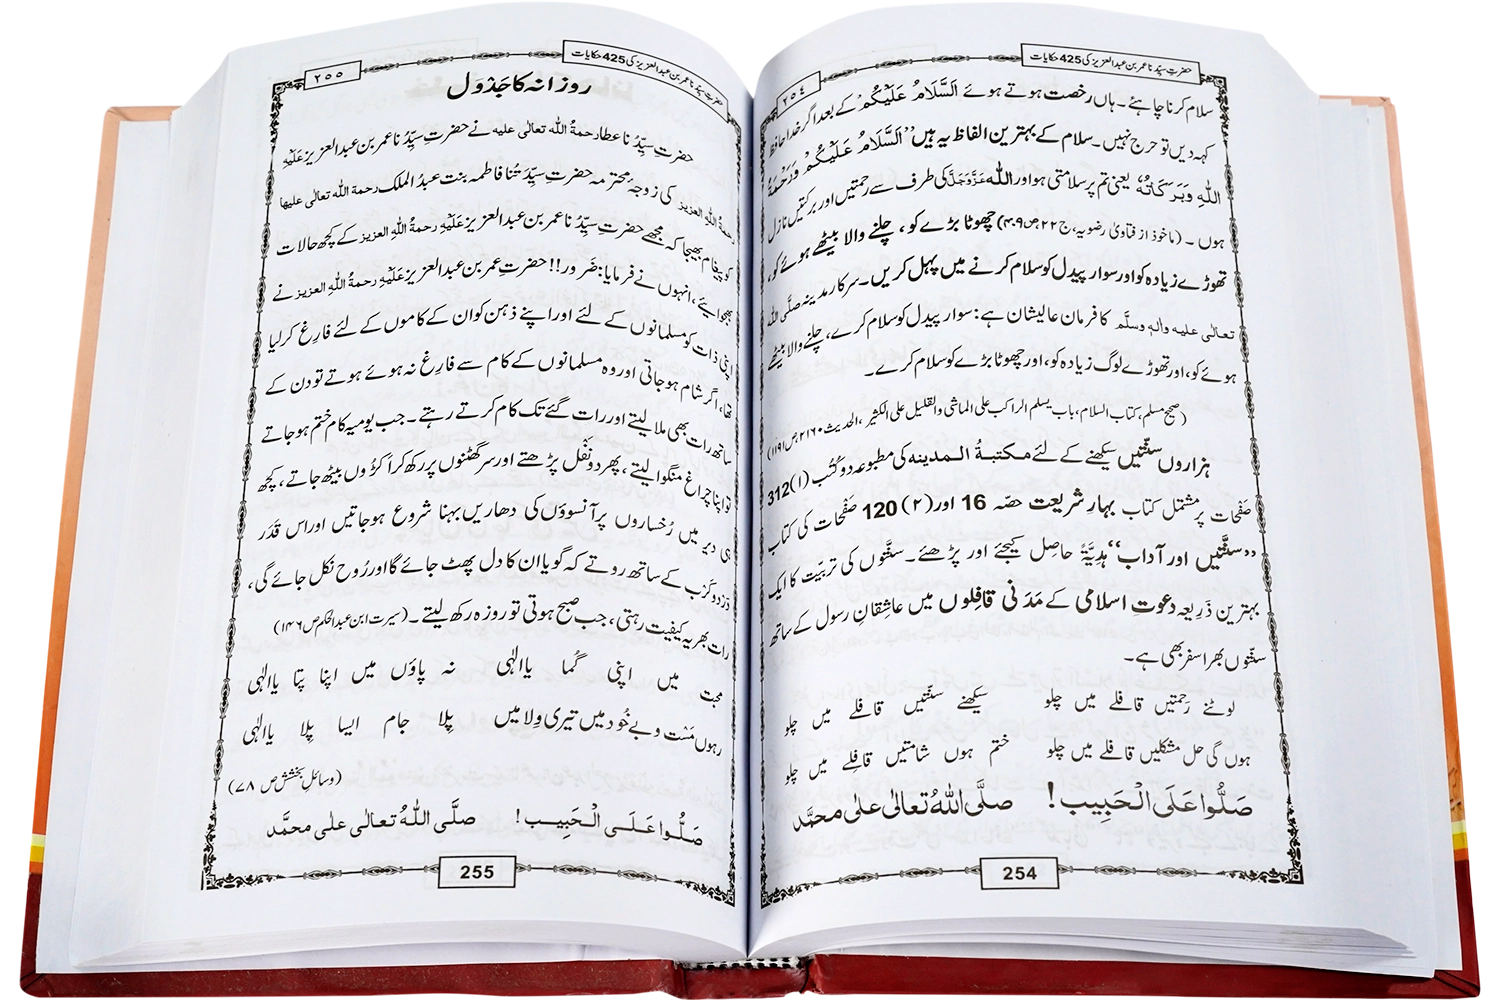 حضرتِ سیِّدُنا عمر بن عبدالعزیز کی 425 حکایات
٢٥٤
سلام کرنا چاہئے۔ ہاں رخصت ہوتے ہوئے اَلسَّلَامُ عَلَیْکُمْ کے بعد اگر خدا حافظ
کہہ دیں تو حرج نہیں۔ سلام کے بہترین الفاظ یہ ہیں ’’اَلسَّلَامُ عَلَیْکُمْ وَرَحْمَۃُ
اللّٰہِ وَبَرَکَاتُہٗ یعنی تم پر سلامتی ہو اور اللّٰہ عَزَّوَجَلَّ کی طرف سے رحمتیں اور برکتیں نازل
ہوں۔ (ماخوذ از فتاویٰ رضویہ، ج۲۲ ص۴۰۹) چھوٹا بڑے کو ، چلنے والا بیٹھے ہوئے کو،
تھوڑے زیادہ کو اور سوار پیدل کو سلام کرنے میں پہل کریں۔ سرکار مدینہ صلَّی اللہ
تعالٰی علیہ والہٖ وسلَّم کا فرمان عالیشان ہے: سوار پیدل کو سلام کرے، چلنے والا بیٹھے
ہوئے کو، اور تھوڑے لوگ زیادہ کو، اور چھوٹا بڑے کو سلام کرے۔
(صحیح مسلم، کتاب السلام، باب یسلم الراکب علی الماشی والقلیل علی الکثیر، الحدیث ۲۱۶۰ ص۱۱۹۱)
ہزاروں سنّتیں سیکھنے کے لئے مکتبۃُ المدینہ کی مطبوعہ دو کُتُب (۱) 312
صَفحات پر مشتمل کتاب بہارِ شریعت حصّہ 16 اور (۲) 120 صَفحات کی کتاب
’’سنّتیں اور آداب‘‘ ہدِیَّۃً حاصِل کیجئے اور پڑھئے۔ سنّتوں کی تربیّت کا ایک
بہترین ذَرِیعہ دعوتِ اسلامی کے مَدَنی قافِلوں میں عاشِقانِ رسول کے ساتھ
سنّتوں بھرا سفر بھی ہے۔
لوٹنے رَحمتیں قافلے میں چلو سیکھنے سنّتیں قافلے میں چلو
ہوں گی حل مشکلیں قافلے میں چلو ختم ہوں شامتیں قافلے میں چلو
صَلُّوا عَلَی الْحَبِیب! صلَّی اللّٰہُ تعالٰی علٰی محمَّد
254
حضرتِ سیِّدُنا عمر بن عبدالعزیز کی 425 حکایات
٢٥٥
روزانہ کا جَدْوَل
حضرتِ سیِّدُنا عطار رحمۃُ اللہ تعالٰی علیہ نے حضرتِ سیِّدُنا عمر بن عبدالعزیز عَلَیْہِ
رحمۃُ اللہِ العزیز کی زوجۂ محترمہ حضرتِ سیِّدتُنا فاطمہ بنت عبدُ الملک رحمۃ اللہ تعالٰی علیہا
کو پیغام بھیجا کہ مجھے حضرتِ سیِّدُنا عمر بن عبدالعزیز عَلَیْہِ رحمۃُ اللہِ العزیز کے کچھ حالات
بھجوایئے، انہوں نے فرمایا: ضَرور!! حضرتِ عمر بن عبدالعزیز عَلَیْہِ رحمۃُ اللہِ العزیز نے
اپنی ذات کو مسلمانوں کے لئے اور اپنے ذہن کو ان کے کاموں کے لئے فارِغ کرلیا
تھا، اگر شام ہوجاتی اور وہ مسلمانوں کے کام سے فارِغ نہ ہوئے ہوتے تو دن کے
ساتھ رات بھی ملالیتے اور رات گئے تک کام کرتے رہتے۔ جب یومیہ کام ختم ہوجاتے
تو اپنا چراغ منگوا لیتے، پھر دو نَفْل پڑھتے اور سر گھٹنوں پر رکھ کر اکڑوں بیٹھ جاتے، کچھ
ہی دیر میں رُخساروں پر آنسوؤں کی دھاریں بہنا شروع ہوجاتیں اور اس قَدَر
دَرْد و کَرْب کے ساتھ روتے کہ گویا ان کا دل پھٹ جائے گا اور رُوح نکل جائے گی،
رات بھر یہ کیفیت رہتی، جب صبح ہوتی تو روزہ رکھ لیتے۔ (سیرت ابن عبدالحکم ص۱۴۶)
محبت میں اپنی گُما یاالٰہی نہ پاؤں میں اپنا پتا یاالٰہی
رہوں مَسْت و بے خُود میں تیری وِلا میں پِلا جام ایسا پِلا یاالٰہی
(وسائلِ بخشش ص ۷۸)
صَلُّوا عَلَی الْحَبِیب! صلَّی اللّٰہُ تعالٰی علٰی محمَّد
255